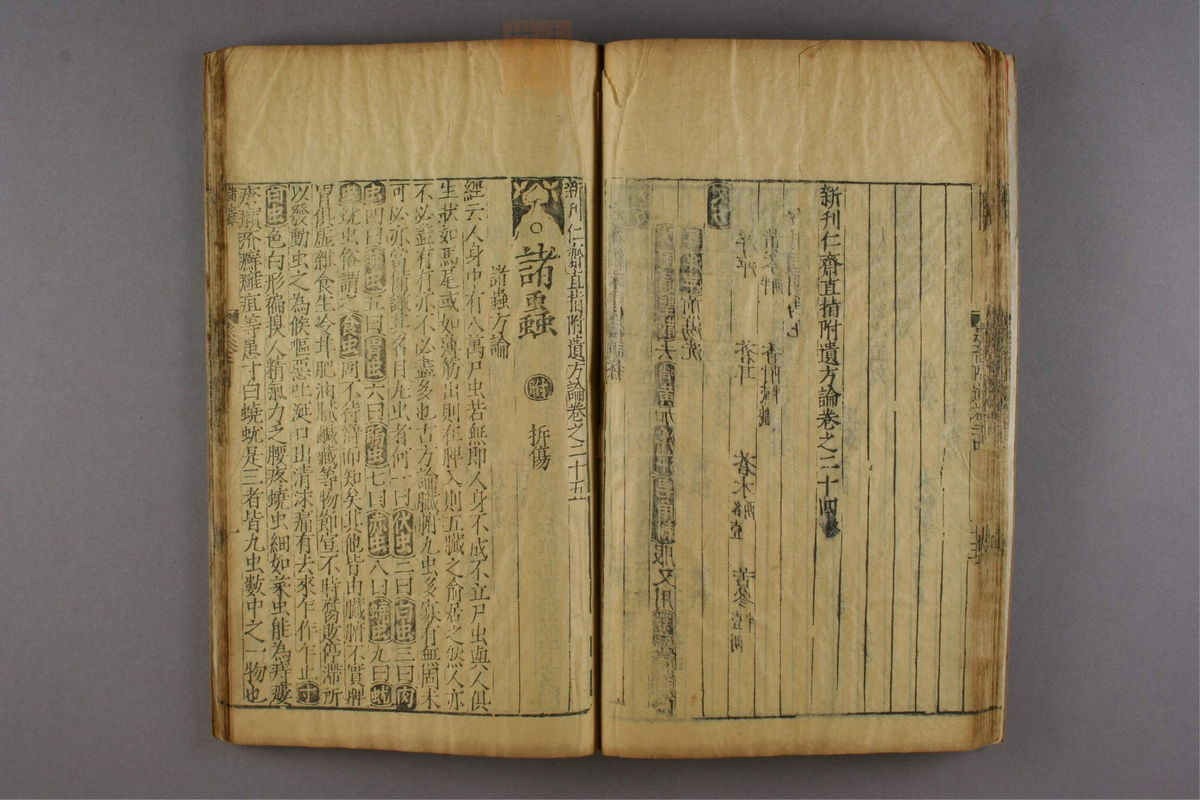 蒼朮各壹兩
苦參壹兩半
蒼耳
香附
浮萍
前湯洗
服又用
新刊仁齋直指附遺方論卷之二十四終
新刊仁齋直指附遺方論卷之二十五
諸蟲 附 折傷
諸蟲方論
經云人身中有八萬尸虫若無即人身不成不立尸虫與人俱
生狀如馬尾或如薄筋出則在脾入則五臟之俞居之然人亦
不必盡有有亦不必盡多也古方論臟腑九虫多寡有無固未
可必亦當備識其名目九虫者何一曰伏虫二曰白虫三曰肉
虫四曰肺虫五曰胃虫六曰弱虫七曰赤虫八曰蟯虫九曰蚘
虫蚘虫俗謂之食虫固不待辯而知矣其他皆由臟腑不實脾
胃俱虛雜食生冷甘肥油膩鹹藏等物節宣不時腐敗停滯所
以發動虫之為候慪惡吐涎口出清沫痛有去來乍作乍止寸
白虫色白形褊損人精氣力乏腰疼蟯虫細如菜虫能為痔瘻
疥癩疥癬癰疽等患寸白蟯蚘是三者皆九虫數中之一物也